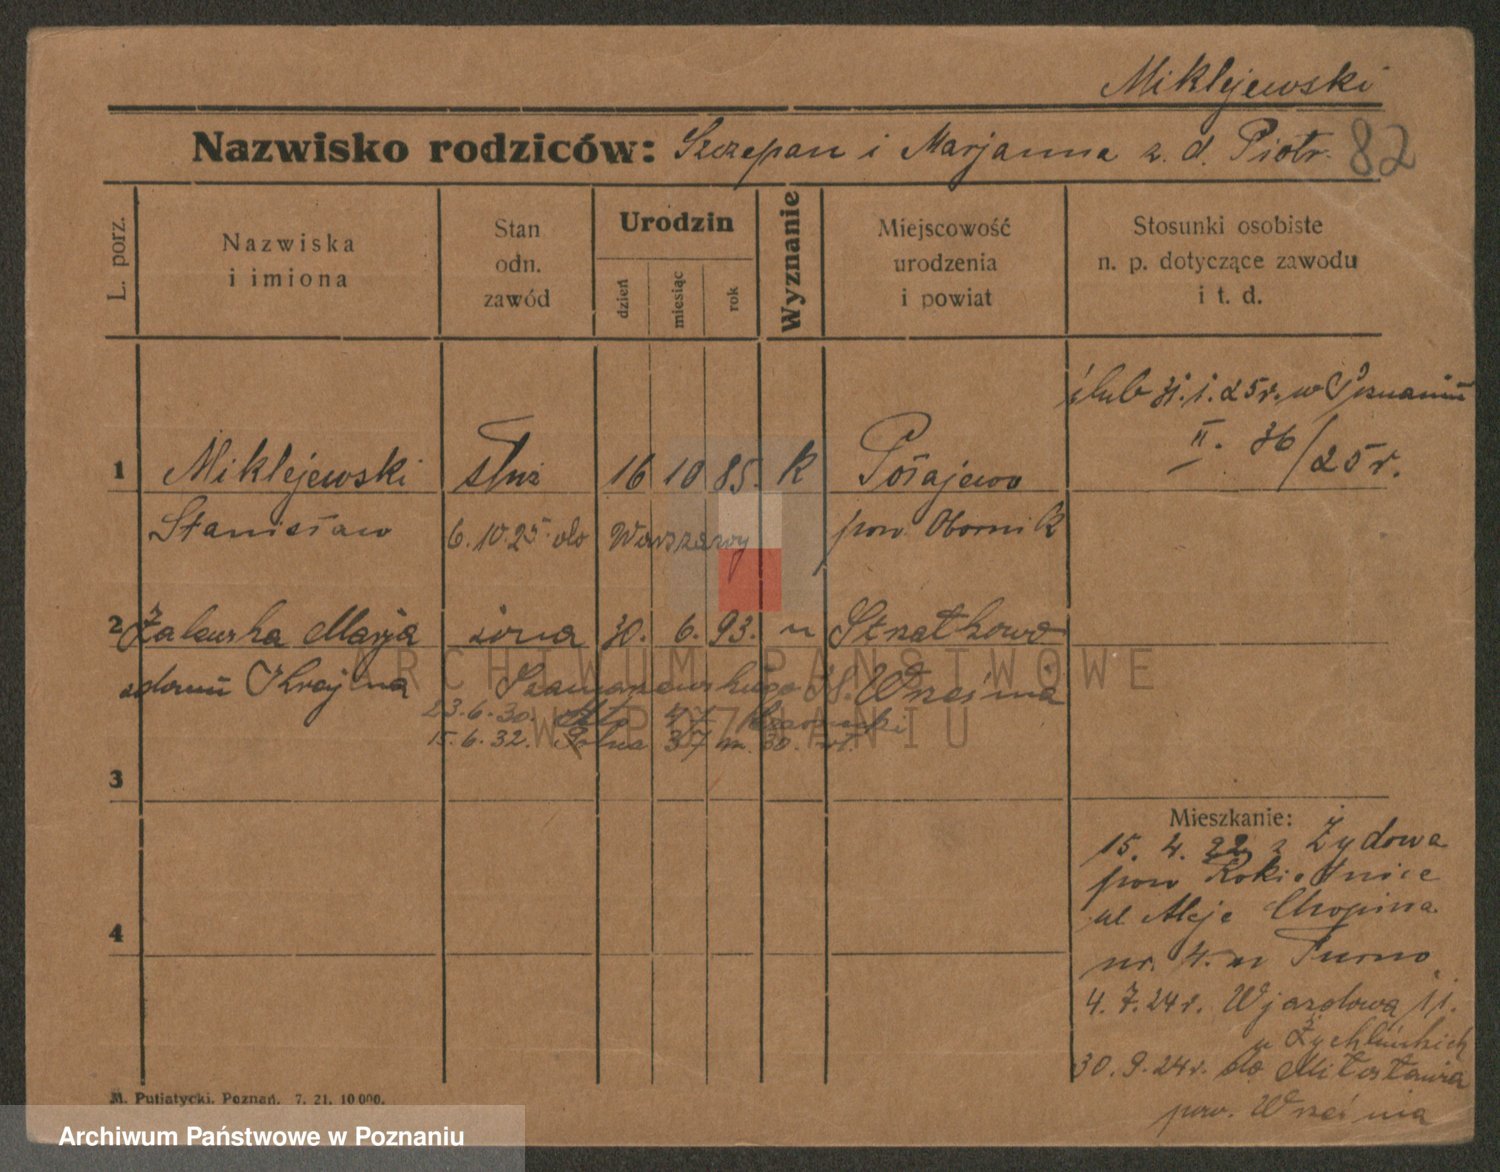 Miklejewski
Nazwisko rodziców: Szczepan i Marjanna z. d. Piotr. 82
L. porz.
Nazwiska
i imiona
Stan
odn.
zawód
Urodzin
dzień
miesiąc
rok
Wyznanie
Miejscowość
urodzenia
i powiat
Stosunki osobiste
n. p. dotyczące zawodu
i t. d.
ślub 31.1.25r. w Poznaniu
II. 36/25 r.
1 Miklejewski służ 16 10 85. k Połajewo
Stanisław 6.10.25 do Warszawy pow Obornik
2 Żalewska Marja żona 30. 6. 93. " Strzałkowo
zdomu Szamarzewskiego Września
23.6.30. 47
15.6.32. Polna 37 m. 30.
3
4
Mieszkanie:
15. 4. 22 z Żydowa
pow Rokietnice
ul Aleje Chopina
nr. 4. u Turno
4.7.24 r. Wjazdowa 11.
u Żychlińskich
30.9.24r. do Miłosławia
pow. Września
M. Putiatycki, Poznań. 7. 21. 10 000.
ARCHIWUM PAŃSTWOWE
W POZNANIU
Archiwum Państwowe w Poznaniu